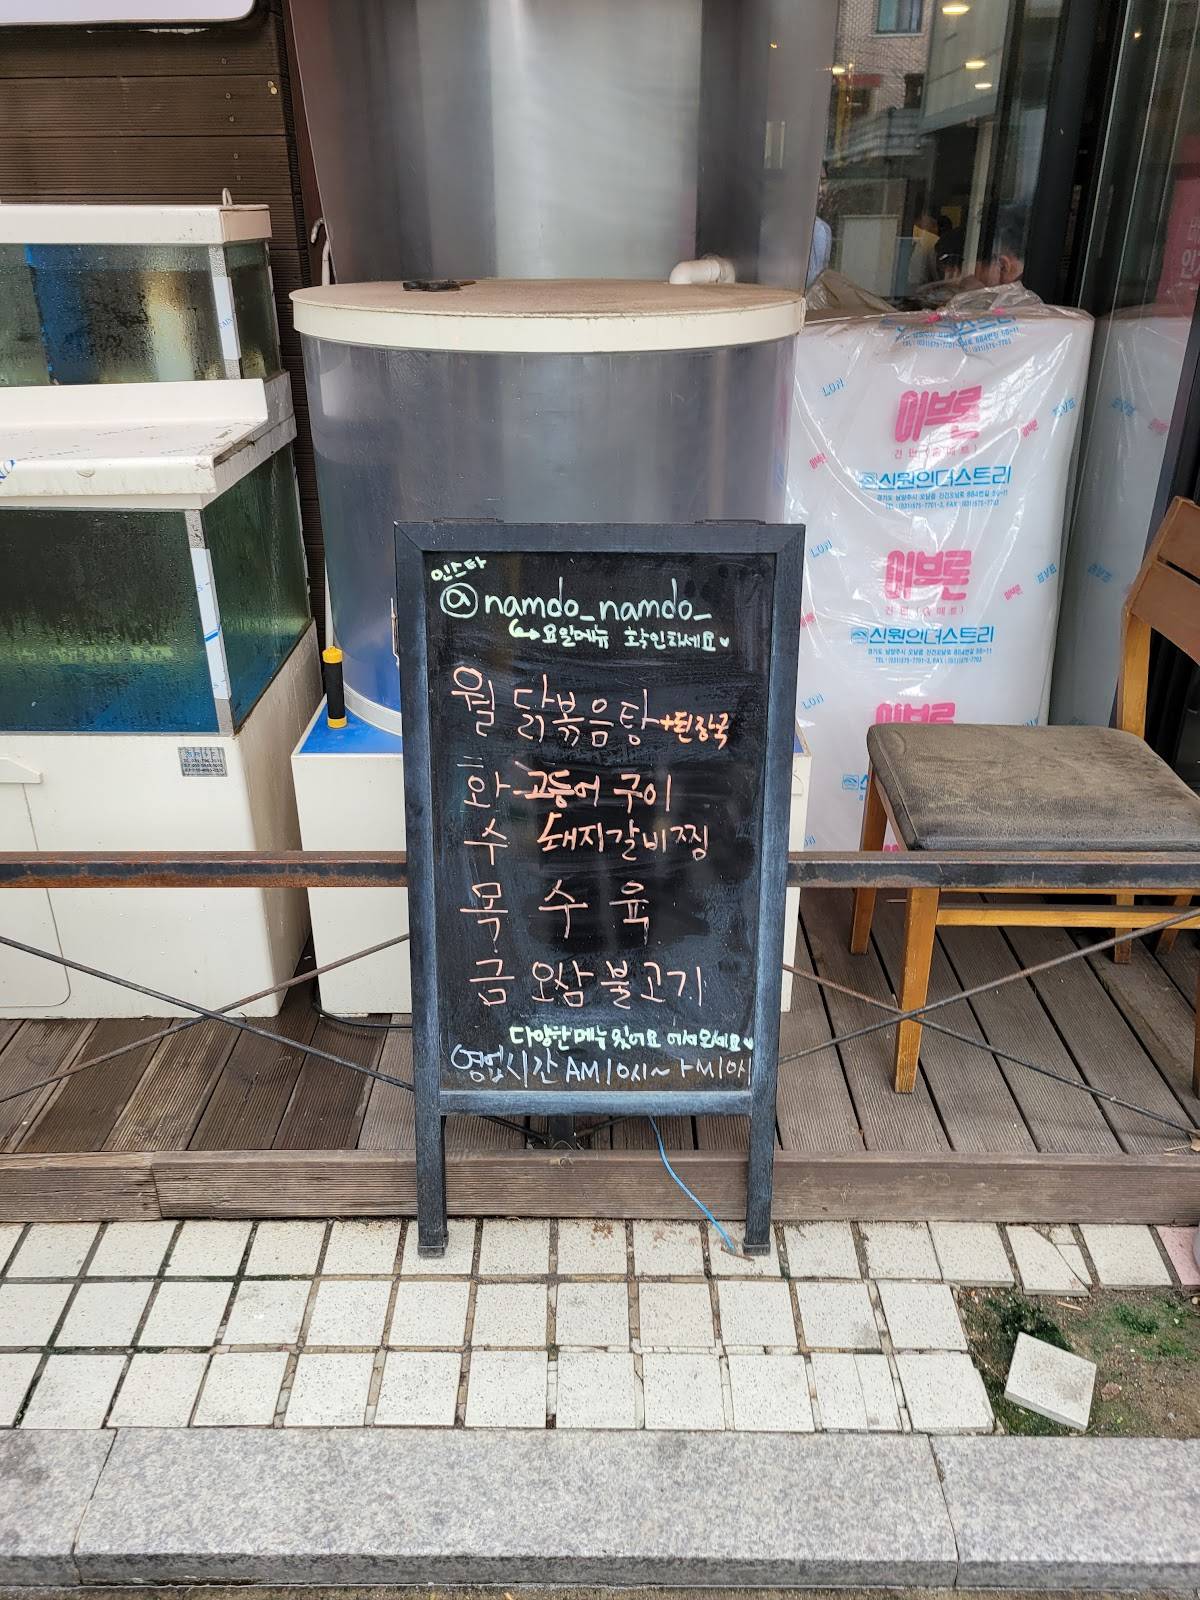 인스타
@namdo_namdo_
요일메뉴 확인하세요
월 닭볶음탕 +된장국
화 고등어 구이
수 돼지갈비찜
목 수육
금 오삼불고기
다양한메뉴 있어요 어서오세요
영업시간 AM10시~
이브론
신원인더스트리
이브론
신원인더스트리
이브론